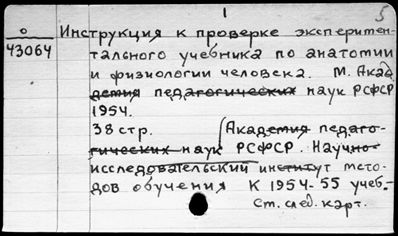 1
5
О
43064
Инструкция к проверке эксперимен-
тального учебника по анатомии
и физиологии человека. М. Акад
демия педагогических наук РСФСР
1954.
38 стр. (Академия педаго-
гических наук РСФСР. Научно-
исследовательский институт мето-
дов обучения К 1954-55 учеб.-
Ст. след. карт.